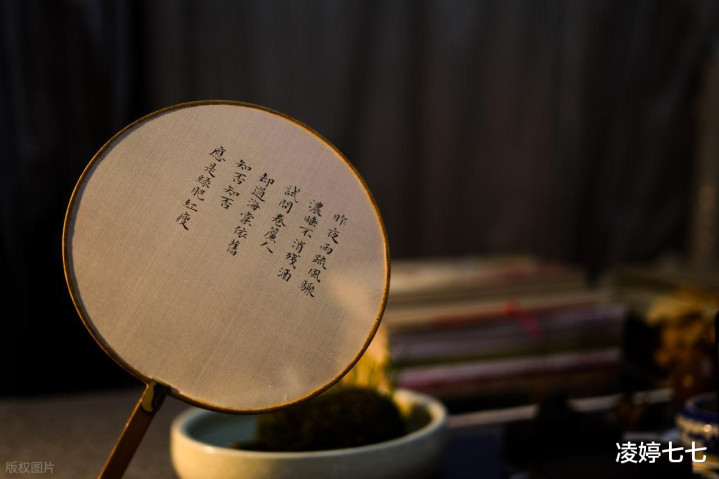 昨夜雨疏風驟
濃睡不消殘酒
試問卷簾人
却道海棠依舊
知否知否
應是綠肥紅瘦
版权图片
凌婷七七